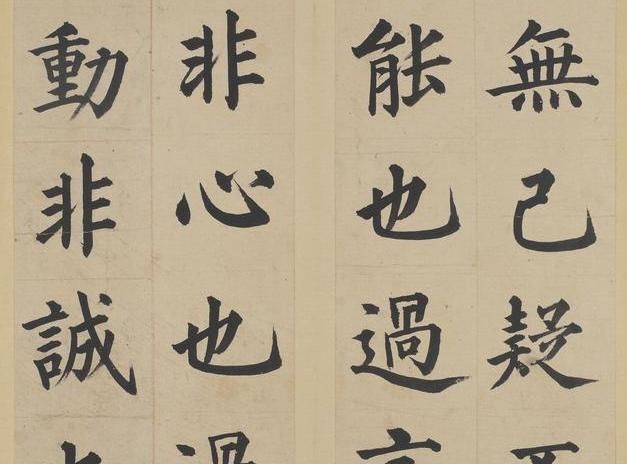 無己疑
能也過
非心也
動非誠